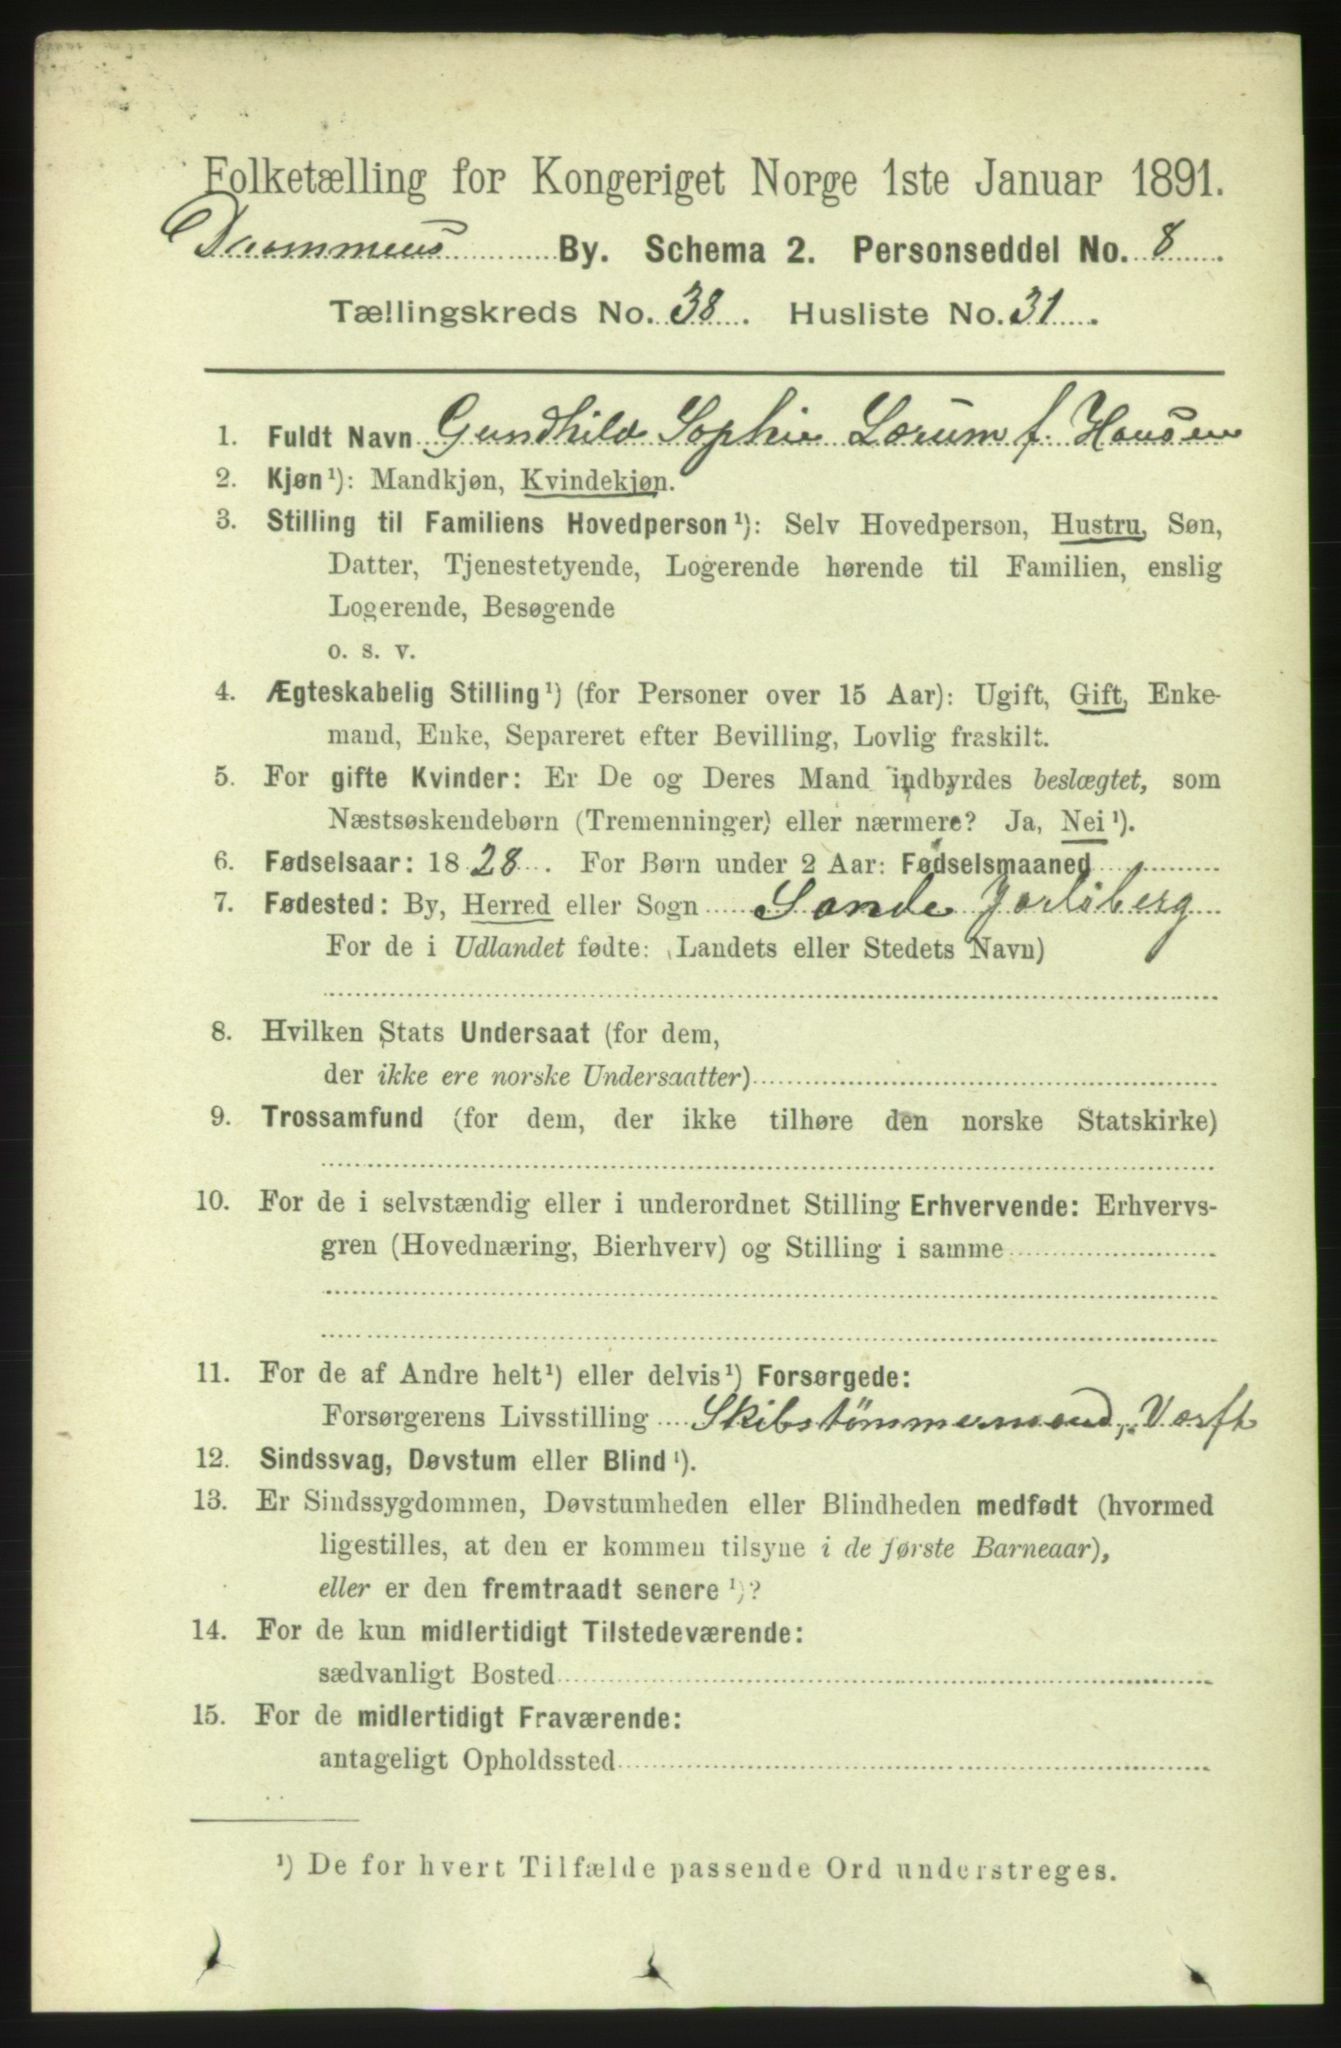 Folketælling for Kongeriget Norge 1ste Januar 1891.
Drammens By. Schema 2. Personseddel No. 8
Tællingskreds No. 38. Husliste No. 31.
1. Fuldt Navn Gundhild Sophie Lorum f. Hansen
2. Kjøn¹): Mandkjøn, Kvindekjøn.
3. Stilling til Familiens Hovedperson¹): Selv Hovedperson, Hustru, Søn,
Datter, Tjenestetyende, Logerende hørende til Familien, enslig
Logerende, Besøgende
o. s. v.
4. Ægteskabelig Stilling¹) (for Personer over 15 Aar): Ugift, Gift, Enke-
mand, Enke, Separeret efter Bevilling, Lovlig fraskilt.
5. For gifte Kvinder: Er De og Deres Mand indbyrdes beslægtet, som
Næstsøskendebørn (Tremenninger) eller nærmere? Ja, Nei¹).
6. Fødselsaar: 1828. For Børn under 2 Aar: Fødselsmaaned
7. Fødested: By, Herred eller Sogn Sande Jarlsberg
For de i Udlandet fødte: (Landets eller Stedets Navn)
8. Hvilken Stats Undersaat (for dem,
der ikke ere norske Undersaatter)
9. Trossamfund (for dem, der ikke tilhøre den norske Statskirke)
10. For de i selvstændig eller i underordnet Stilling Erhvervende: Erhvervs-
gren (Hovednæring, Bierhverv) og Stilling i samme
11. For de af Andre helt¹) eller delvis¹) Forsørgede:
Forsørgerens Livsstilling Skibstømmermand, Værft
12. Sindssvag, Døvstum eller Blind¹).
13. Er Sindssygdommen, Døvstumheden eller Blindheden medfødt (hvormed
ligestilles, at den er kommen tilsyne i de første Barneaar),
eller er den fremtraadt senere¹)?
14. For de kun midlertidigt Tilstedeværende:
sædvanligt Bosted
15. For de midlertidigt Fraværende:
antageligt Opholdssted
¹) De for hvert Tilfælde passende Ord understreges.